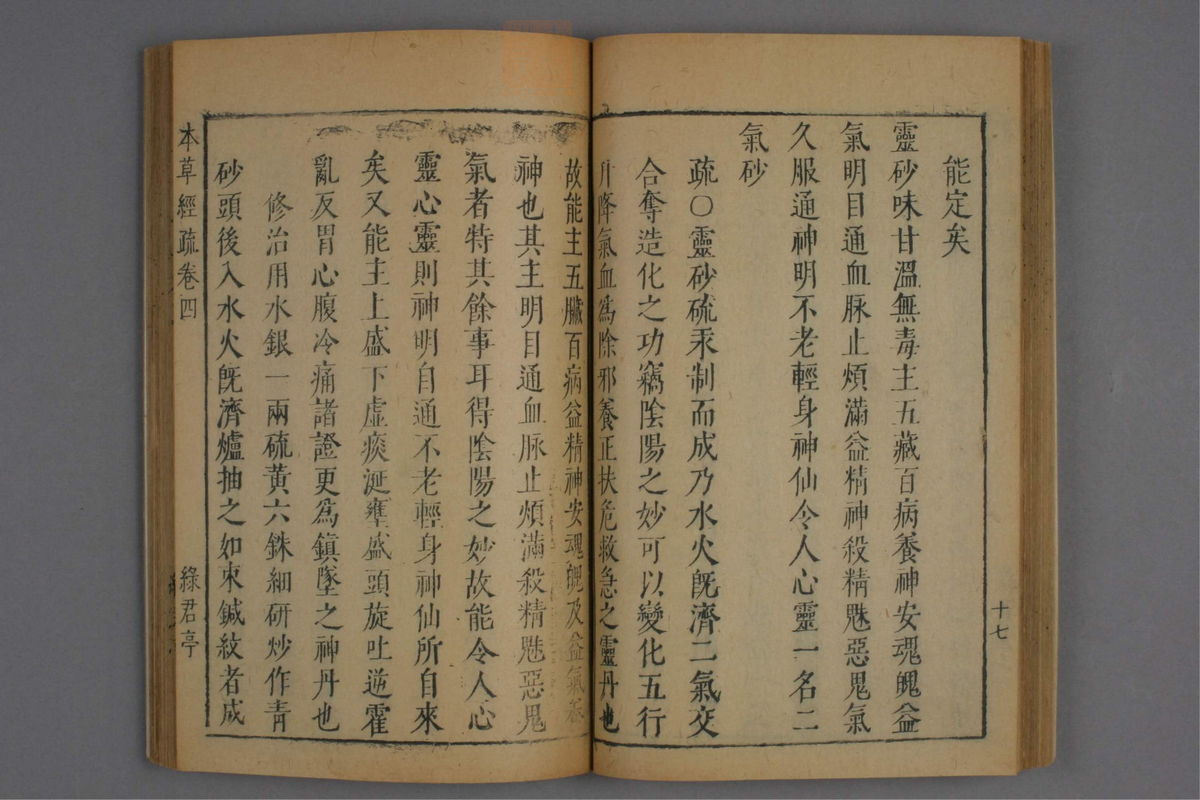 能定矣
靈砂味甘溫無毒主五藏百病養神安魂魄益
氣明目通血脉止煩滿益精神殺精魅惡鬼氣
久服通神明不老輕身神仙令人心靈一名二
氣砂
疏○靈砂硫汞制而成乃水火旣濟二氣交
合奪造化之功竊陰陽之妙可以變化五行
升降氣血爲除邪養正扶危救急之靈丹也
故能主五臟百病益精神安魂魄及益氣養
神也其主明目通血脉止煩滿殺精魅惡鬼
氣者特其餘事耳得陰陽之妙故能令人心
靈心靈則神明自通不老輕身神仙所自來
矣又能主上盛下虛痰涎壅盛頭旋吐逆霍
亂反胃心腹冷痛諸證更爲鎮墜之神丹也
修治用水銀一兩硫黃六銖細研炒作靑
砂頭後入水火旣濟爐抽之如束鍼紋者成
十七
本草經疏卷四
綠君亭